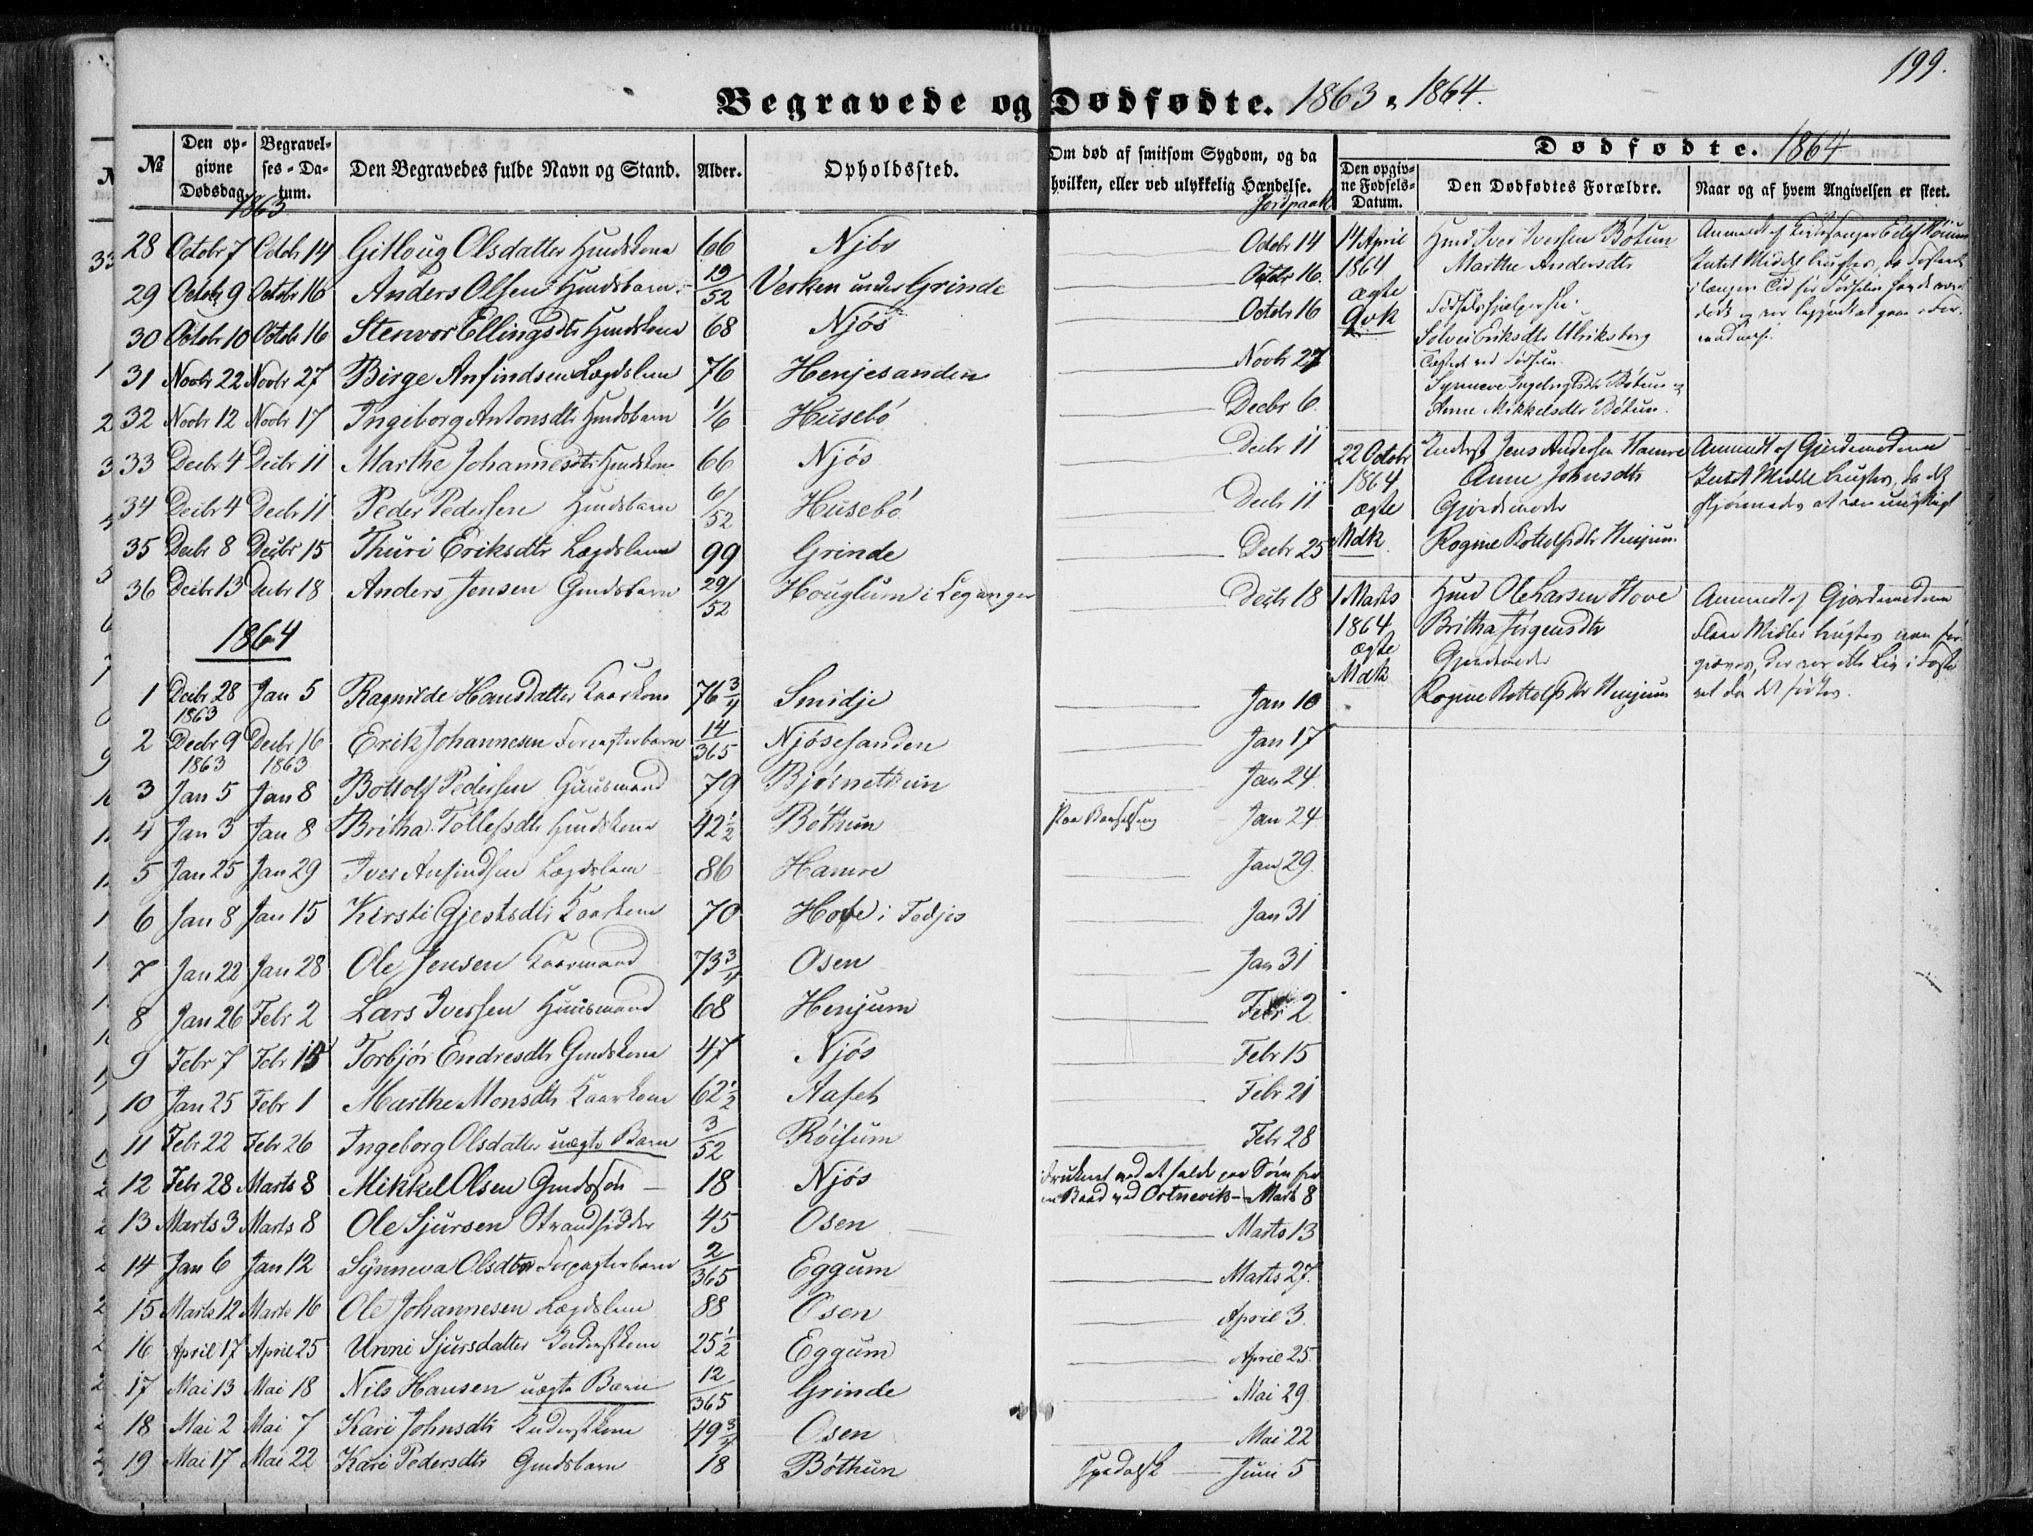 199.
Begravede og Dødfødte. 1863 & 1864.
№ Den opgivne Dødsdag. Begravelses-Datum. Den Begravedes fulde Navn og Stand. Alder. Opholdssted. Om død af smitsom Sygdom, og da hvilken, eller ved ulykkelig Hændelse. Jordpaak
1863
28 Octobr 7 Octobr 14 Gitloug Olsdatter Gmdskone 66 Njøs Octbr 14
29 Octobr 9 Octbr 16 Anders Olsen Hmdsbarn 19/52 Verken under Grinde Octbr 16
30 Octobr 10 Octobr 16 Stenvor Ellingsdtr Hmdskone 68 Njøs Octobr 16
31 Novbr 22 Novbr 27 Birge Anfindsen Lægdslem 76 Henjesanden Novbr 27
32 Novbr 12 Novbr 17 Ingeborg Antonsdtr Hmdsbarn 1/6 Husebø Decbr 6
33 Decbr 4 Decbr 11 Marthe Johannesdtr Hmdskone 66 Njøs Decbr 11
34 Decbr 4 Decbr 11 Peder Pedersen Hmdsbarn 6/52 Husebø Decbr 11
35 Decbr 8 Decbr 15 Thuri Eriksdtr Lægdslem 99 Grinde Decbr 25
36 Decbr 13 Decbr 18 Anders Jensen Gmdsbarn 29/52 Houglum i Leganger Decbr 18
1864
1 Decbr 28 1863 Jan 5 Ragnilde Hansdatter Kaarkone 76 3/4 Smidje Jan 10
2 Decbr 9 1863 Decbr 16 1863 Erik Johannesen Forpagterbarn 14/365 Njøsesanden Jan 17
3 Jan 5 Jan 8 Bottolf Pedersen Huusmand 79 Bjørnetun Jan 24
4 Jan 3 Jan 8 Britha Tollefsdtr Hmdskone 42 1/2 Bøthun paa Barselseng Jan 24
5 Jan 25 Jan 29 Iver Anfindsen Lægdslem 86 Hamre Jan 29
6 Jan 8 Jan 15 Kirsti Gjestsdtr Kaarkone 70 Hove i Fedjos Jan 31
7 Jan 22 Jan 28 Ole Jensen Kaarmand 73 3/4 Osen Jan 31
8 Jan 26 Febr 2 Lars Iversen Huusmand 68 Henjum Febr 2
9 Febr 7 Febr 15 Torbjør Endresdtr Gmdskone 47 Njøs Febr 15
10 Jan 25 Febr 1 Marthe Monsdtr Kaarkone 62 1/2 Aaset Febr 21
11 Febr 22 Febr 26 Ingeborg Olsdatter uægte Barn 3/52 Røisum Febr 28
12 Febr 28 Marts 8 Mikkel Olsen Gmdssøn 18 Njøs Druknet ved at falde paa Søen fra en Baad ved Ortnevik Marts 8
13 Marts 3 Marts 8 Ole Sjursen Strandsidder 45 Osen Marts 13
14 Jan 6 Jan 12 Synneva Olsdtr Forpagterbarn 2/365 Eggum Marts 27
15 Marts 12 Marts 16 Ole Johannesen Lægdslem 88 Osen April 3
16 April 17 April 25 Uroni Sjursdatter Inderstkone 25 1/2 Eggum April 25
17 Mai 13 Mai 18 Nils Hansen uægte Barn 12/365 Grinde Mai 29
18 Mai 2 Mai 7 Kari Johnsdtr Inderstkone 49 3/4 Osen Mai 22
19 Mai 17 Mai 22 Kari Pedersdtr Gmdsbarn 18 Bøthun Spedalsk Juni 5
Dødfødte. 1864
Den opgivne Fødsels-Datum. Den Dødfødtes Forældre. Naar og af hvem Angivelsen er skeet.
14 April 1864 ægte Qvk
Hmd Iver Iversen Bøtun
Marthe Andersdtr
Fødselshjælperske
Solvei Eriksdtr Ulriksborg
Tilsted ved Fødselen
Synneve Ingebrigtsdtr Bøtun og
Anne Mikkelsdtr Bøtun.
Anmeldt af Kirkesanger
Intet Middel brugtes, da Fosteret
i længere Tid før Fødselen havde været
dødt og var begyndt at gaae i
22 Octobr 1864 ægte Mdk
Inderst Jens Andersen Hamre
Anne Johnsdtr
Gjordemoder
Rogine Bottolfsdtr Henjum.
Anmeldt af Gjordemoderen
Intet Middel brugtes, da det
skjønnedes at være unyttigt
1 Marts 1864 ægte Mdk
Hmd Ole Larsen Hove
Britha Jørgensdtr
Gjordemoder
Rogine Bottolfsdtr Henjum
Anmeldt af Gjordemoderen
Flere Midler brugtes men
der var ikke Liv i Foste-
ret da det fødtes.